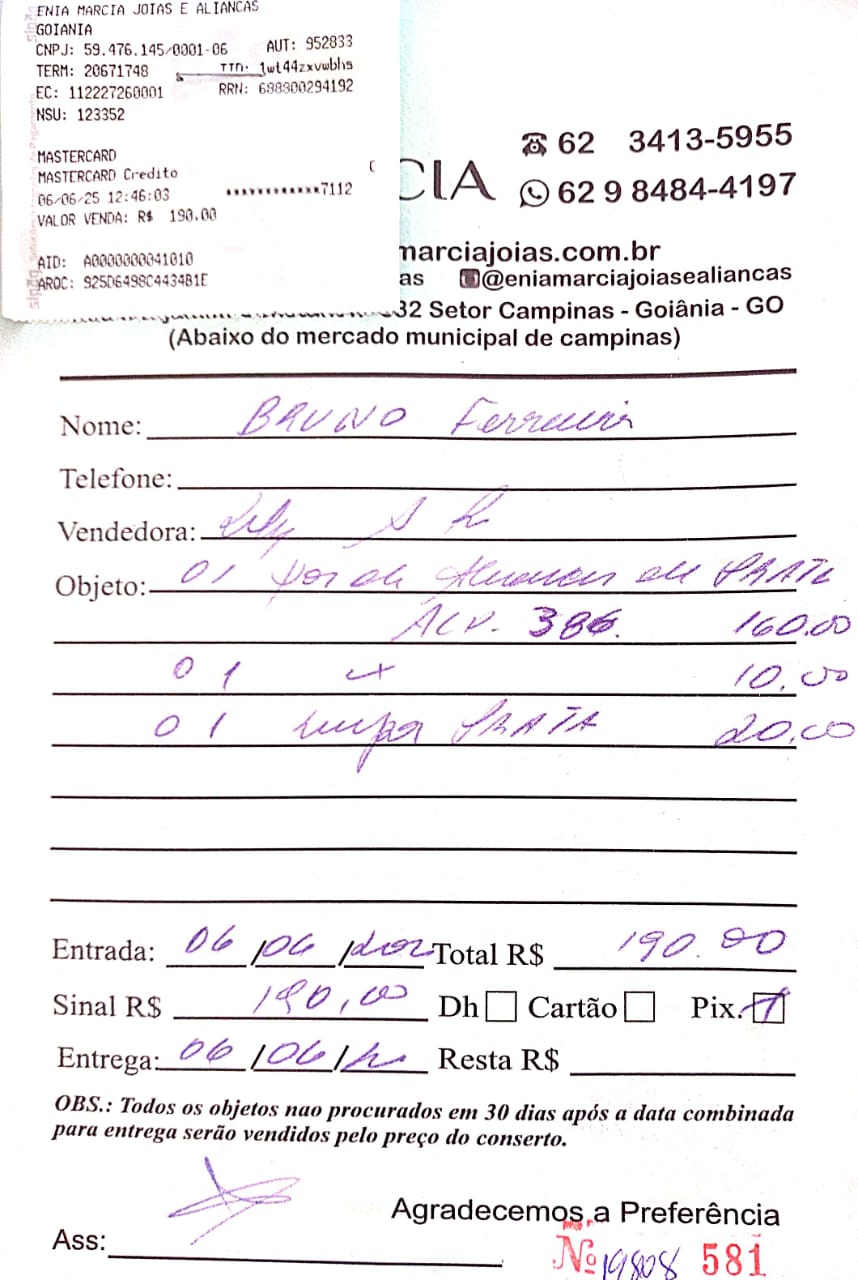 ENIA MARCIA JOIAS E ALIANCAS
GOIANIA
CNPJ: 59.476.145/0001-06 AUT: 952833
TERM: 20671748 TTD: 1wt44zxvwbhs
EC: 112227260001 RRN: 688800294192
NSU: 123352
MASTERCARD
MASTERCARD Credito
06/06/25 12:46:03 ************7112
VALOR VENDA: R$ 190.00
AID: A0000000041010
AROC: 925D6498C4434B1E
CIA
62 3413-5955
62 9 8484-4197
marciajoias.com.br
as @eniamarciajoiasealiancas
32 Setor Campinas - Goiânia - GO
(Abaixo do mercado municipal de campinas)
Nome: BRUNO Ferreira
Telefone:
Vendedora:
Objeto: 01 Par de Alianças de PRATA
386. 160.00
01 10,00
01 limpa PRATA 20,00
Entrada: 06/06/202 Total R$ 190.00
Sinal R$ 190,00 Dh Cartão Pix.
Entrega: 06/06/ Resta R$
OBS.: Todos os objetos nao procurados em 30 dias após a data combinada
para entrega serão vendidos pelo preço do conserto.
Agradecemos a Preferência
Ass:
Nº 19808 581